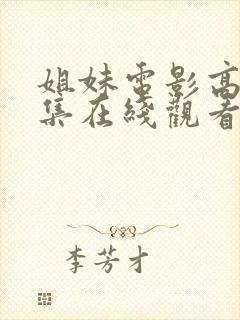 姐妹電影高
集在綫觀看
李芳才